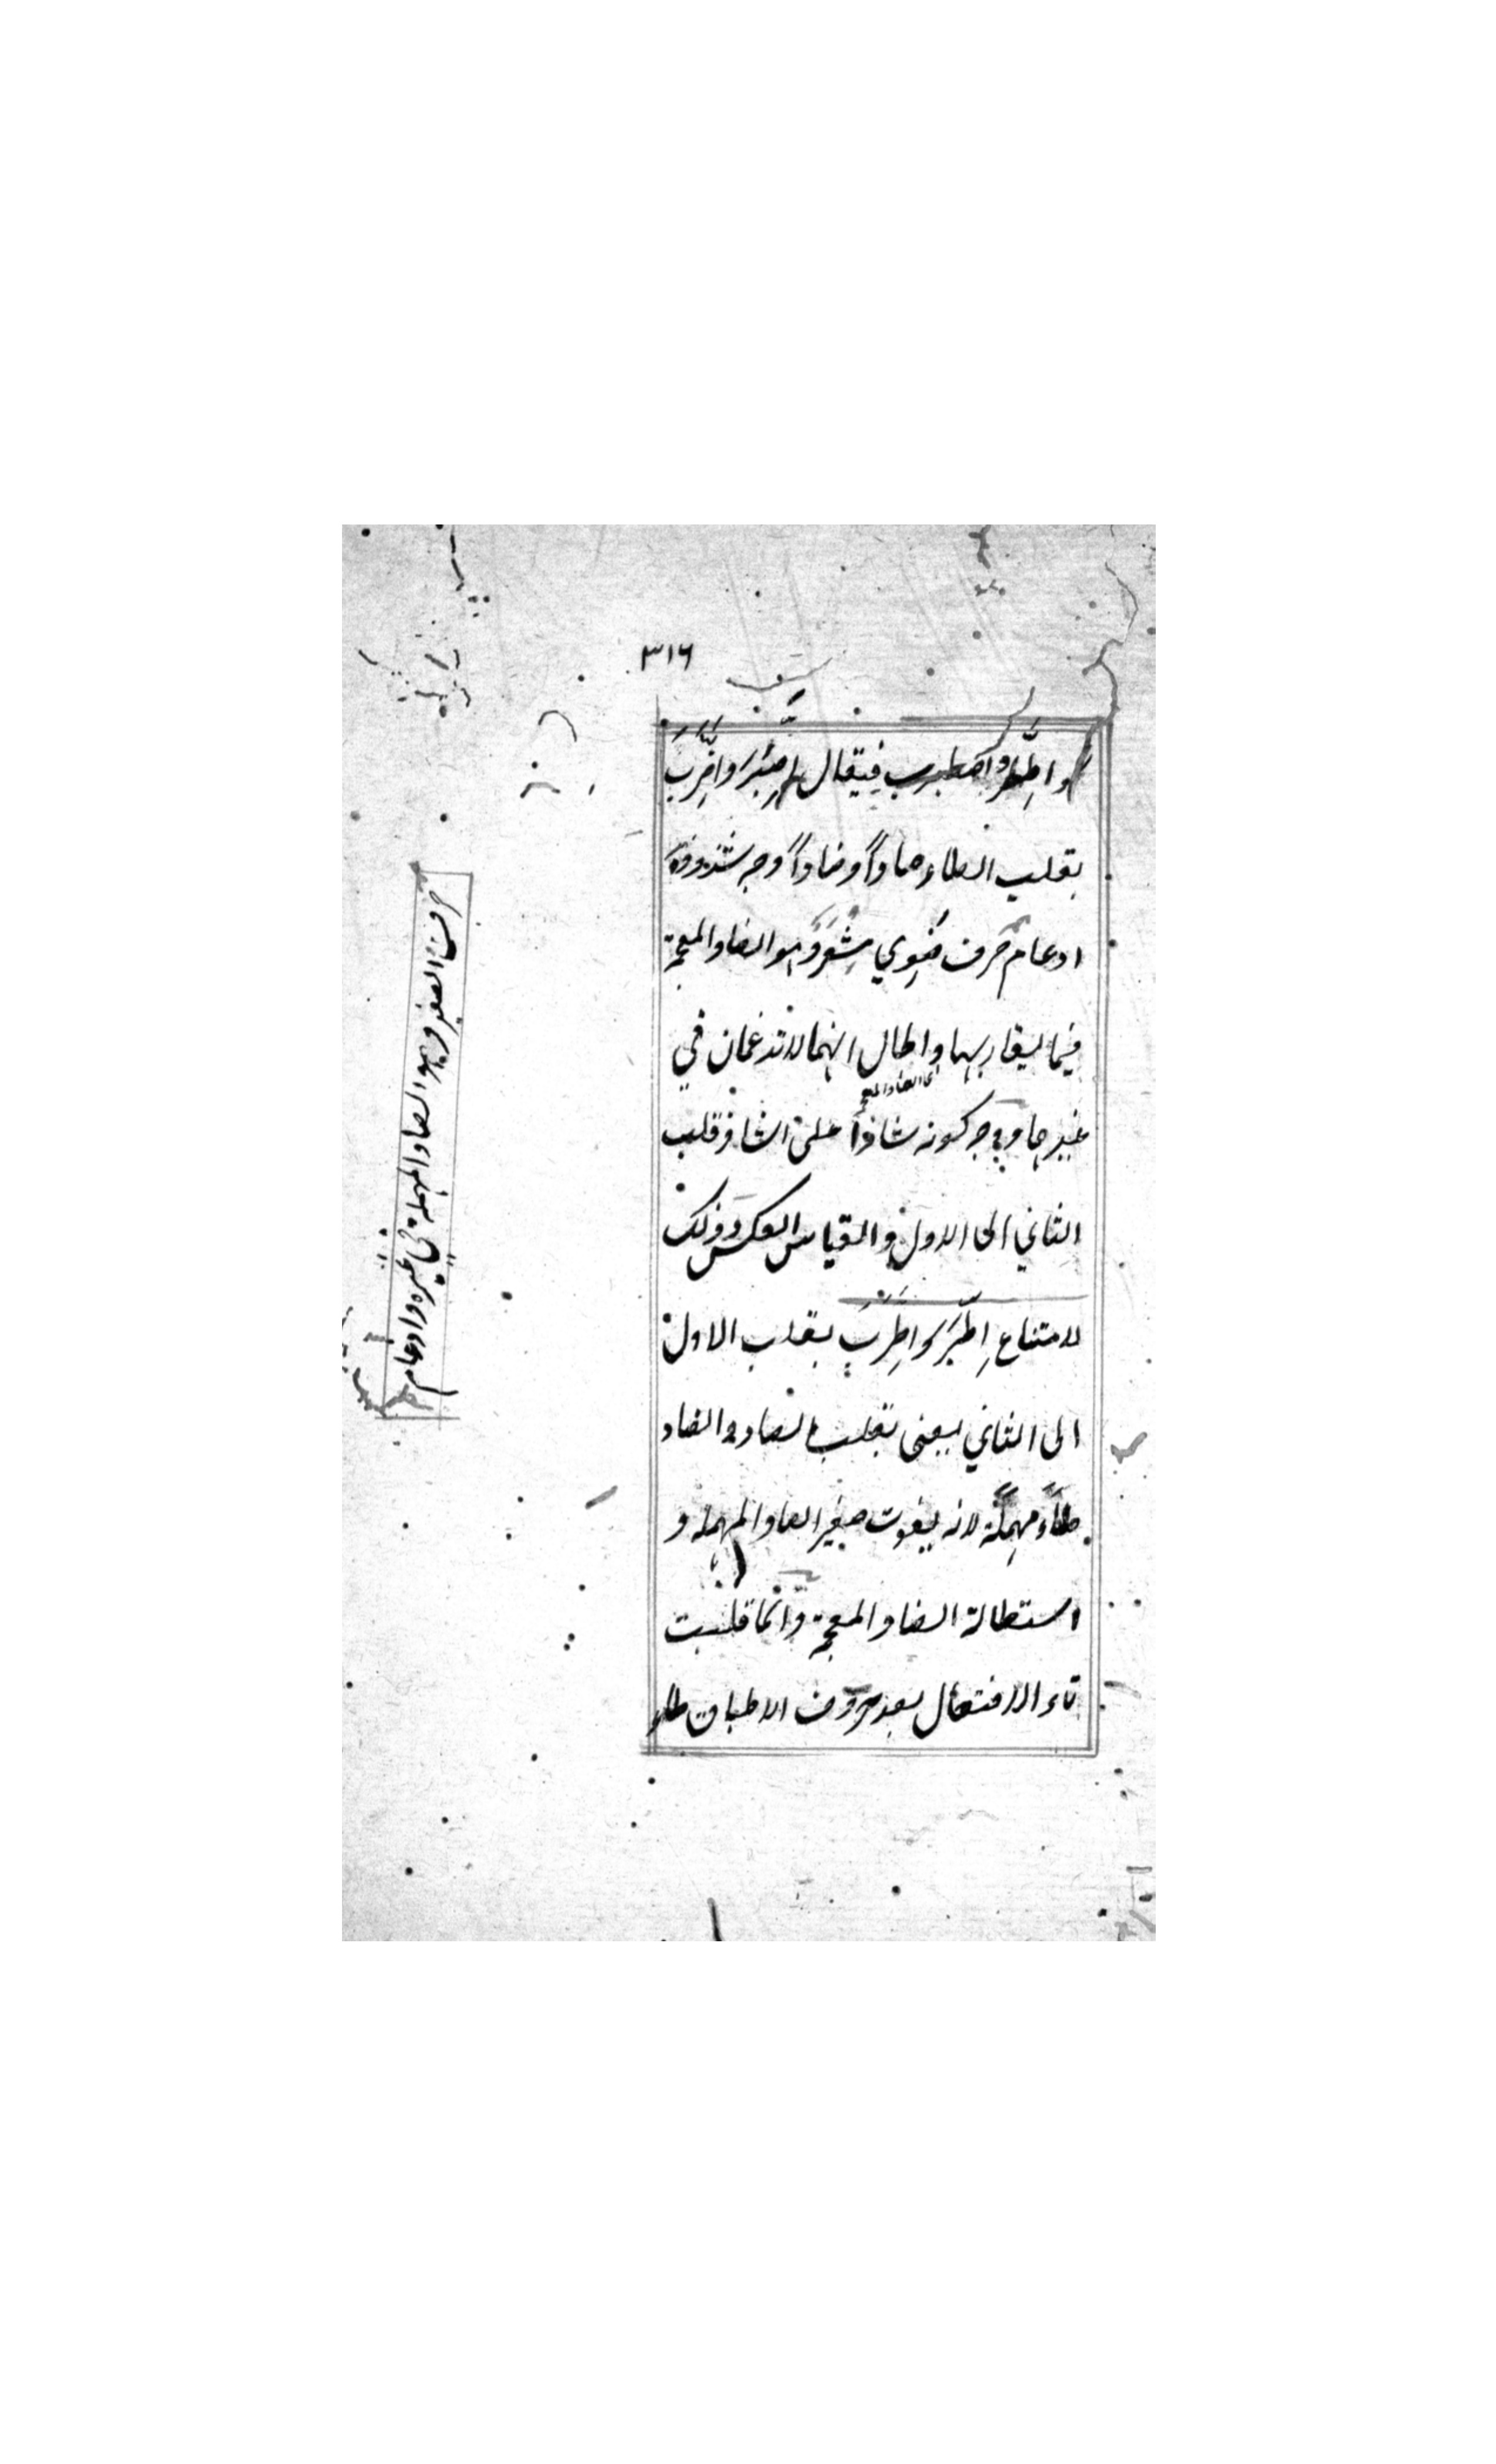 ٣١٦
واطهر واصطبر فيقال اِصَّبَرَ واِضَّرَبَ
بقلب الطاء صادًا وضادًا وجه شذوذه
ادغام حرف ضوي مشفر وهو الضاد المعجمة
فيما يقاربها واطال انهما لا تدغمان في
اى الضاد المعجمة
غير ووجه كونه شاذا على الشاذ قلب
الثاني الى الاول والقياس العكس وذلك
لامتناع اِطَّبَرَ واِطَّرَبَ بقلب الاول
الى الثاني يعنى بقلب الصاد والضاد
طاءً مهملة لانه يفوت صفير الصاد المهملة و
استطالة الضاد المعجمة وانما قلبت
تاء الافتعال بعد حروف الاطباق طاء
حرف الصفير وهو الصاد المهملة في غيره وادغام